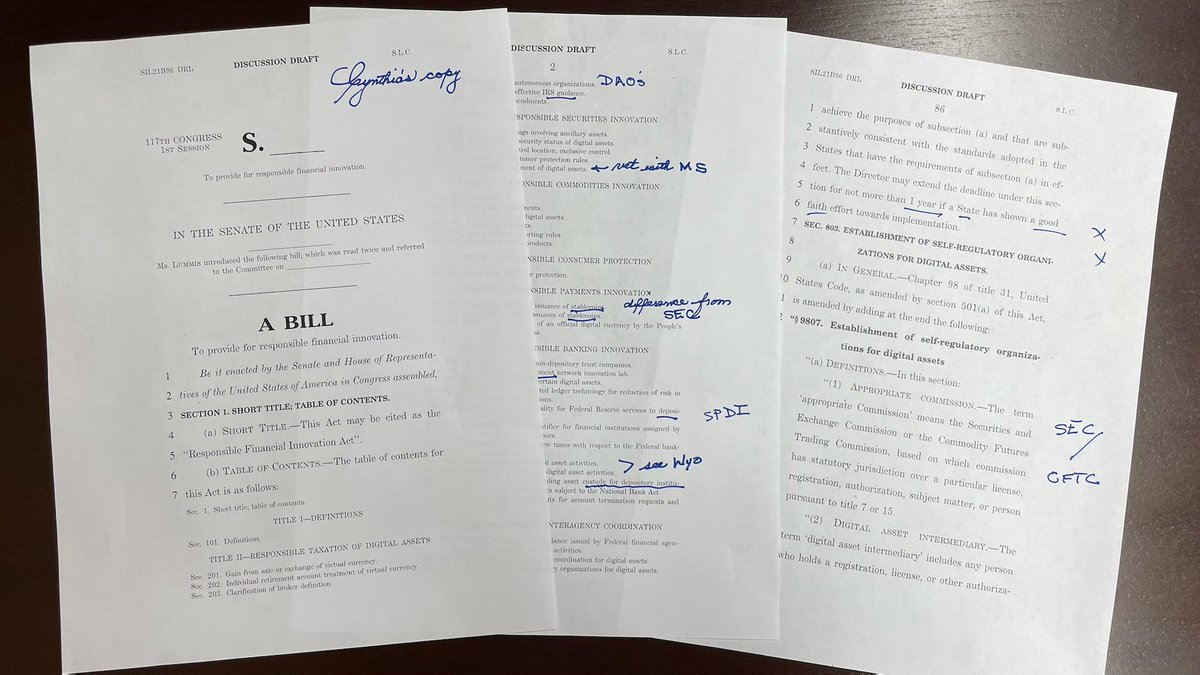 SIL21B96 DRL
DISCUSSION DRAFT
S.L.C.
Cynthia's copy
117TH CONGRESS
1ST SESSION
S.
To provide for responsible financial innovation.
IN THE SENATE OF THE UNITED STATES
Ms. LUMMIS introduced the following bill; which was read twice and referred
to the Committee on
A BILL
To provide for responsible financial innovation.
1 Be it enacted by the Senate and House of Representa-
2 tives of the United States of America in Congress assembled,
3 SECTION 1. SHORT TITLE; TABLE OF CONTENTS.
4 (a) SHORT TITLE.—This Act may be cited as the
5 "Responsible Financial Innovation Act".
6 (b) TABLE OF CONTENTS.—The table of contents for
7 this Act is as follows:
Sec. 1. Short title; table of contents.
TITLE I—DEFINITIONS
Sec. 101. Definitions.
TITLE II—RESPONSIBLE TAXATION OF DIGITAL ASSETS
Sec. 201. Gain from sale or exchange of virtual currency.
Sec. 202. Individual retirement account treatment of virtual currency.
Sec. 203. Clarification of broker definition.
DISCUSSION DRAFT
S.L.C.
2
autonomous organizations. DAO's
effective IRS guidance.
endments.
SPONSIBLE SECURITIES INNOVATION
ngs involving ancillary assets.
security status of digital assets.
trol location; exclusive control.
tomer protection rules.
ment of digital assets. ← vet with MS
ONSIBLE COMMODITIES INNOVATION
ments.
digital assets.
ts.
rting rules.
products.
NSIBLE CONSUMER PROTECTION
er protection.
NSIBLE PAYMENTS INNOVATION
issuance of stablecoins. difference from
ssuance of stablecoins. SEC
of an official digital currency by the People's
na.
NSIBLE BANKING INNOVATION
on-depository trust companies.
ement network innovation lab.
certain digital assets.
ted ledger technology for reduction of risk in
ions.
bility for Federal Reserve services to deposi-
SPDI
ntifier for financial institutions assigned by
ors.
ew times with respect to the Federal bank-
l asset activities.
digital asset activities. > see Wyo
ding asset custody for depository institu-
es subject to the National Bank Act.
nts for account termination requests and
INTERAGENCY COORDINATION
dance issued by Federal financial agen-
activities.
coordination for digital assets.
y organizations for digital assets.
SIL21B96 DRL
DISCUSSION DRAFT
S.L.C.
86
1 achieve the purposes of subsection (a) and that are sub-
2 stantively consistent with the standards adopted in the
3 States that have the requirements of subsection (a) in ef-
4 fect. The Director may extend the deadline under this sec-
5 tion for not more than 1 year if a State has shown a good
6 faith effort towards implementation. X
7 SEC. 803. ESTABLISHMENT OF SELF-REGULATORY ORGANI- X
8 ZATIONS FOR DIGITAL ASSETS.
9 (a) IN GENERAL.—Chapter 98 of title 31, United
0 States Code, as amended by section 501(a) of this Act,
1 is amended by adding at the end the following:
2 "§ 9807. Establishment of self-regulatory organiza-
tions for digital assets
"(a) DEFINITIONS.—In this section:
"(1) APPROPRIATE COMMISSION.—The term
'appropriate Commission' means the Securities and
Exchange Commission or the Commodity Futures
Trading Commission, based on which commission
has statutory jurisdiction over a particular license,
registration, authorization, subject matter, or person
pursuant to title 7 or 15.
SEC/
CFTC
"(2) DIGITAL ASSET INTERMEDIARY.—The
term 'digital asset intermediary' includes any person
who holds a registration, license, or other authoriza-